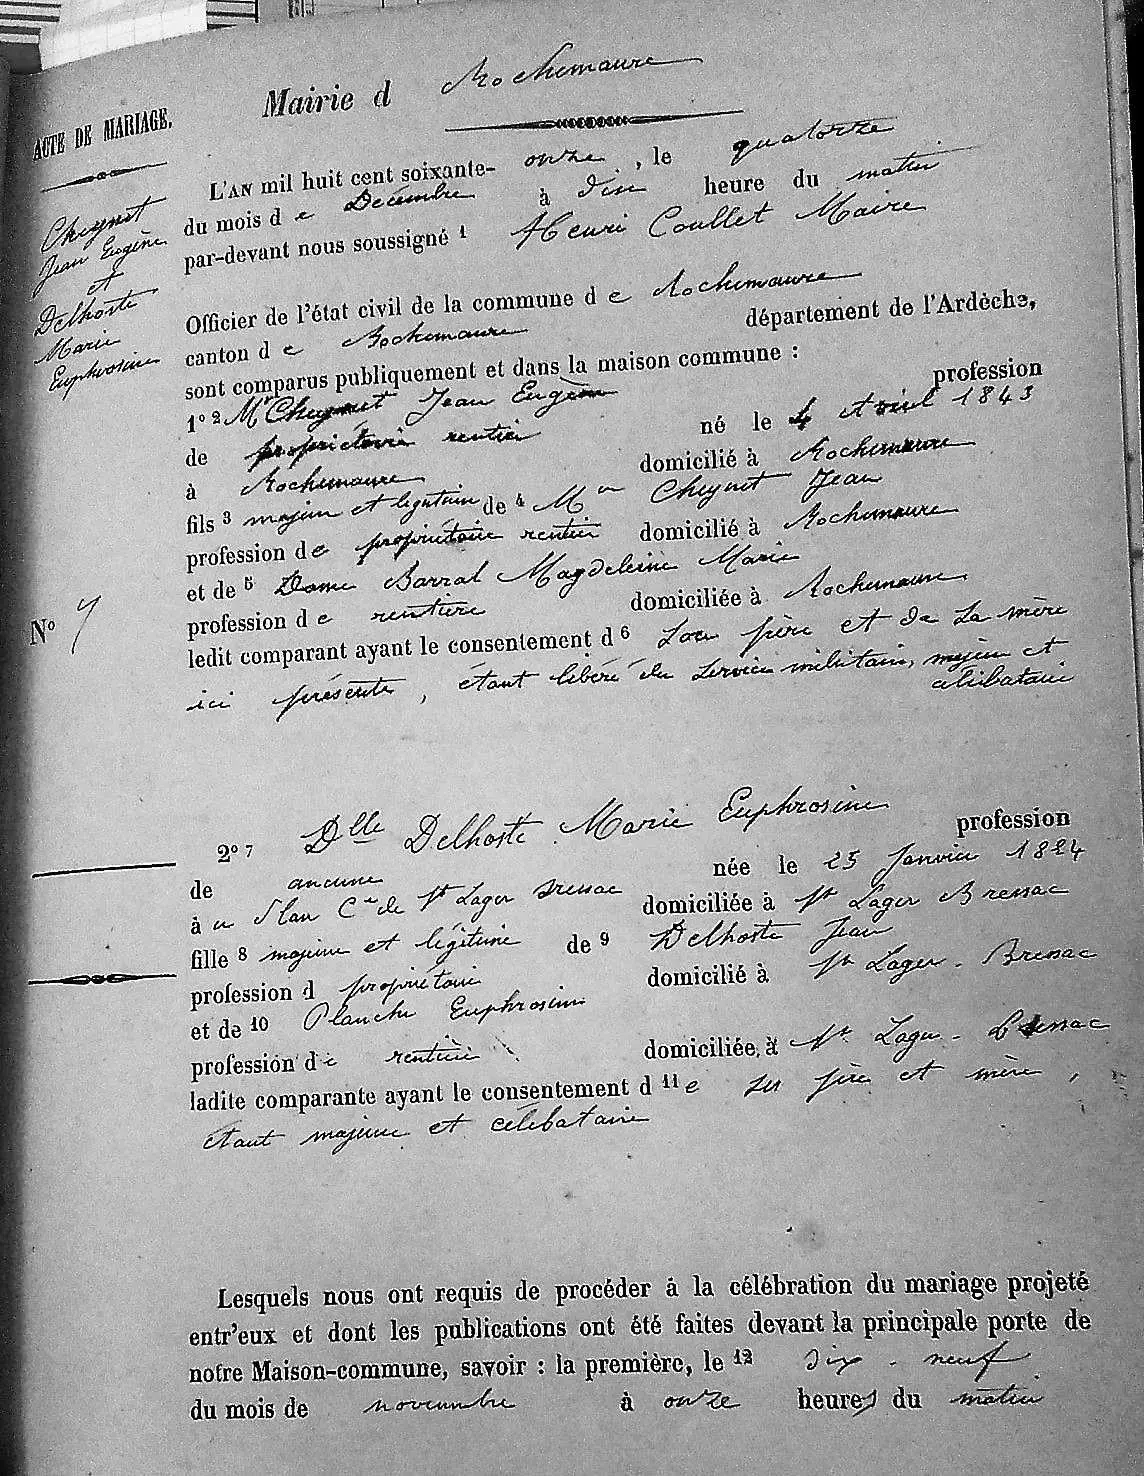 Mairie d Rochemaure
ACTE DE MARIAGE.
L'AN mil huit cent soixante- onze, le quatorze
du mois d e Décembre à dix heure du matin
par-devant nous soussigné 1 Henri Coullet Maire
Cheynet
Jean Eugène
et
Delhoste
Marie
Euphrosine
Officier de l'état civil de la commune d e Rochemaure
canton d e Rochemaure département de l'Ardèche,
sont comparus publiquement et dans la maison commune :
1º 2 Mr Cheynet Jean Eugène profession
de propriétaire rentier né le 4 Avril 1843
à Rochemaure domicilié à Rochemaure
fils 3 majeur et légitime de 4 Mr Cheynet Jean
profession de propriétaire rentier domicilié à Rochemaure
et de 5 Dame Barral Magdeleine Marie
Nº 7
profession d e rentière domiciliée à Rochemaure
ledit comparant ayant le consentement d 6 Son père et de Sa mère
ici présents, étant libéré du service militaire, majeur et
célibataire
2º 7 Dlle Delhoste Marie Euphrosine profession
de aucune née le 25 Janvier 1824
à Cne de St Lager Bressac domiciliée à St Lager Bressac
fille 8 majeure et légitime de 9 Delhoste Jean
profession d propriétaire domicilié à St Lager - Bressac
et de 10 Planche Euphrosine
profession de rentière domiciliée à St Lager - Bressac
ladite comparante ayant le consentement d 11 e ses père et mère,
étant majeure et célibataire
Lesquels nous ont requis de procéder à la célébration du mariage projeté
entr'eux et dont les publications ont été faites devant la principale porte de
notre Maison-commune, savoir : la première, le 12 dix-neuf
du mois de novembre à onze heures du matin